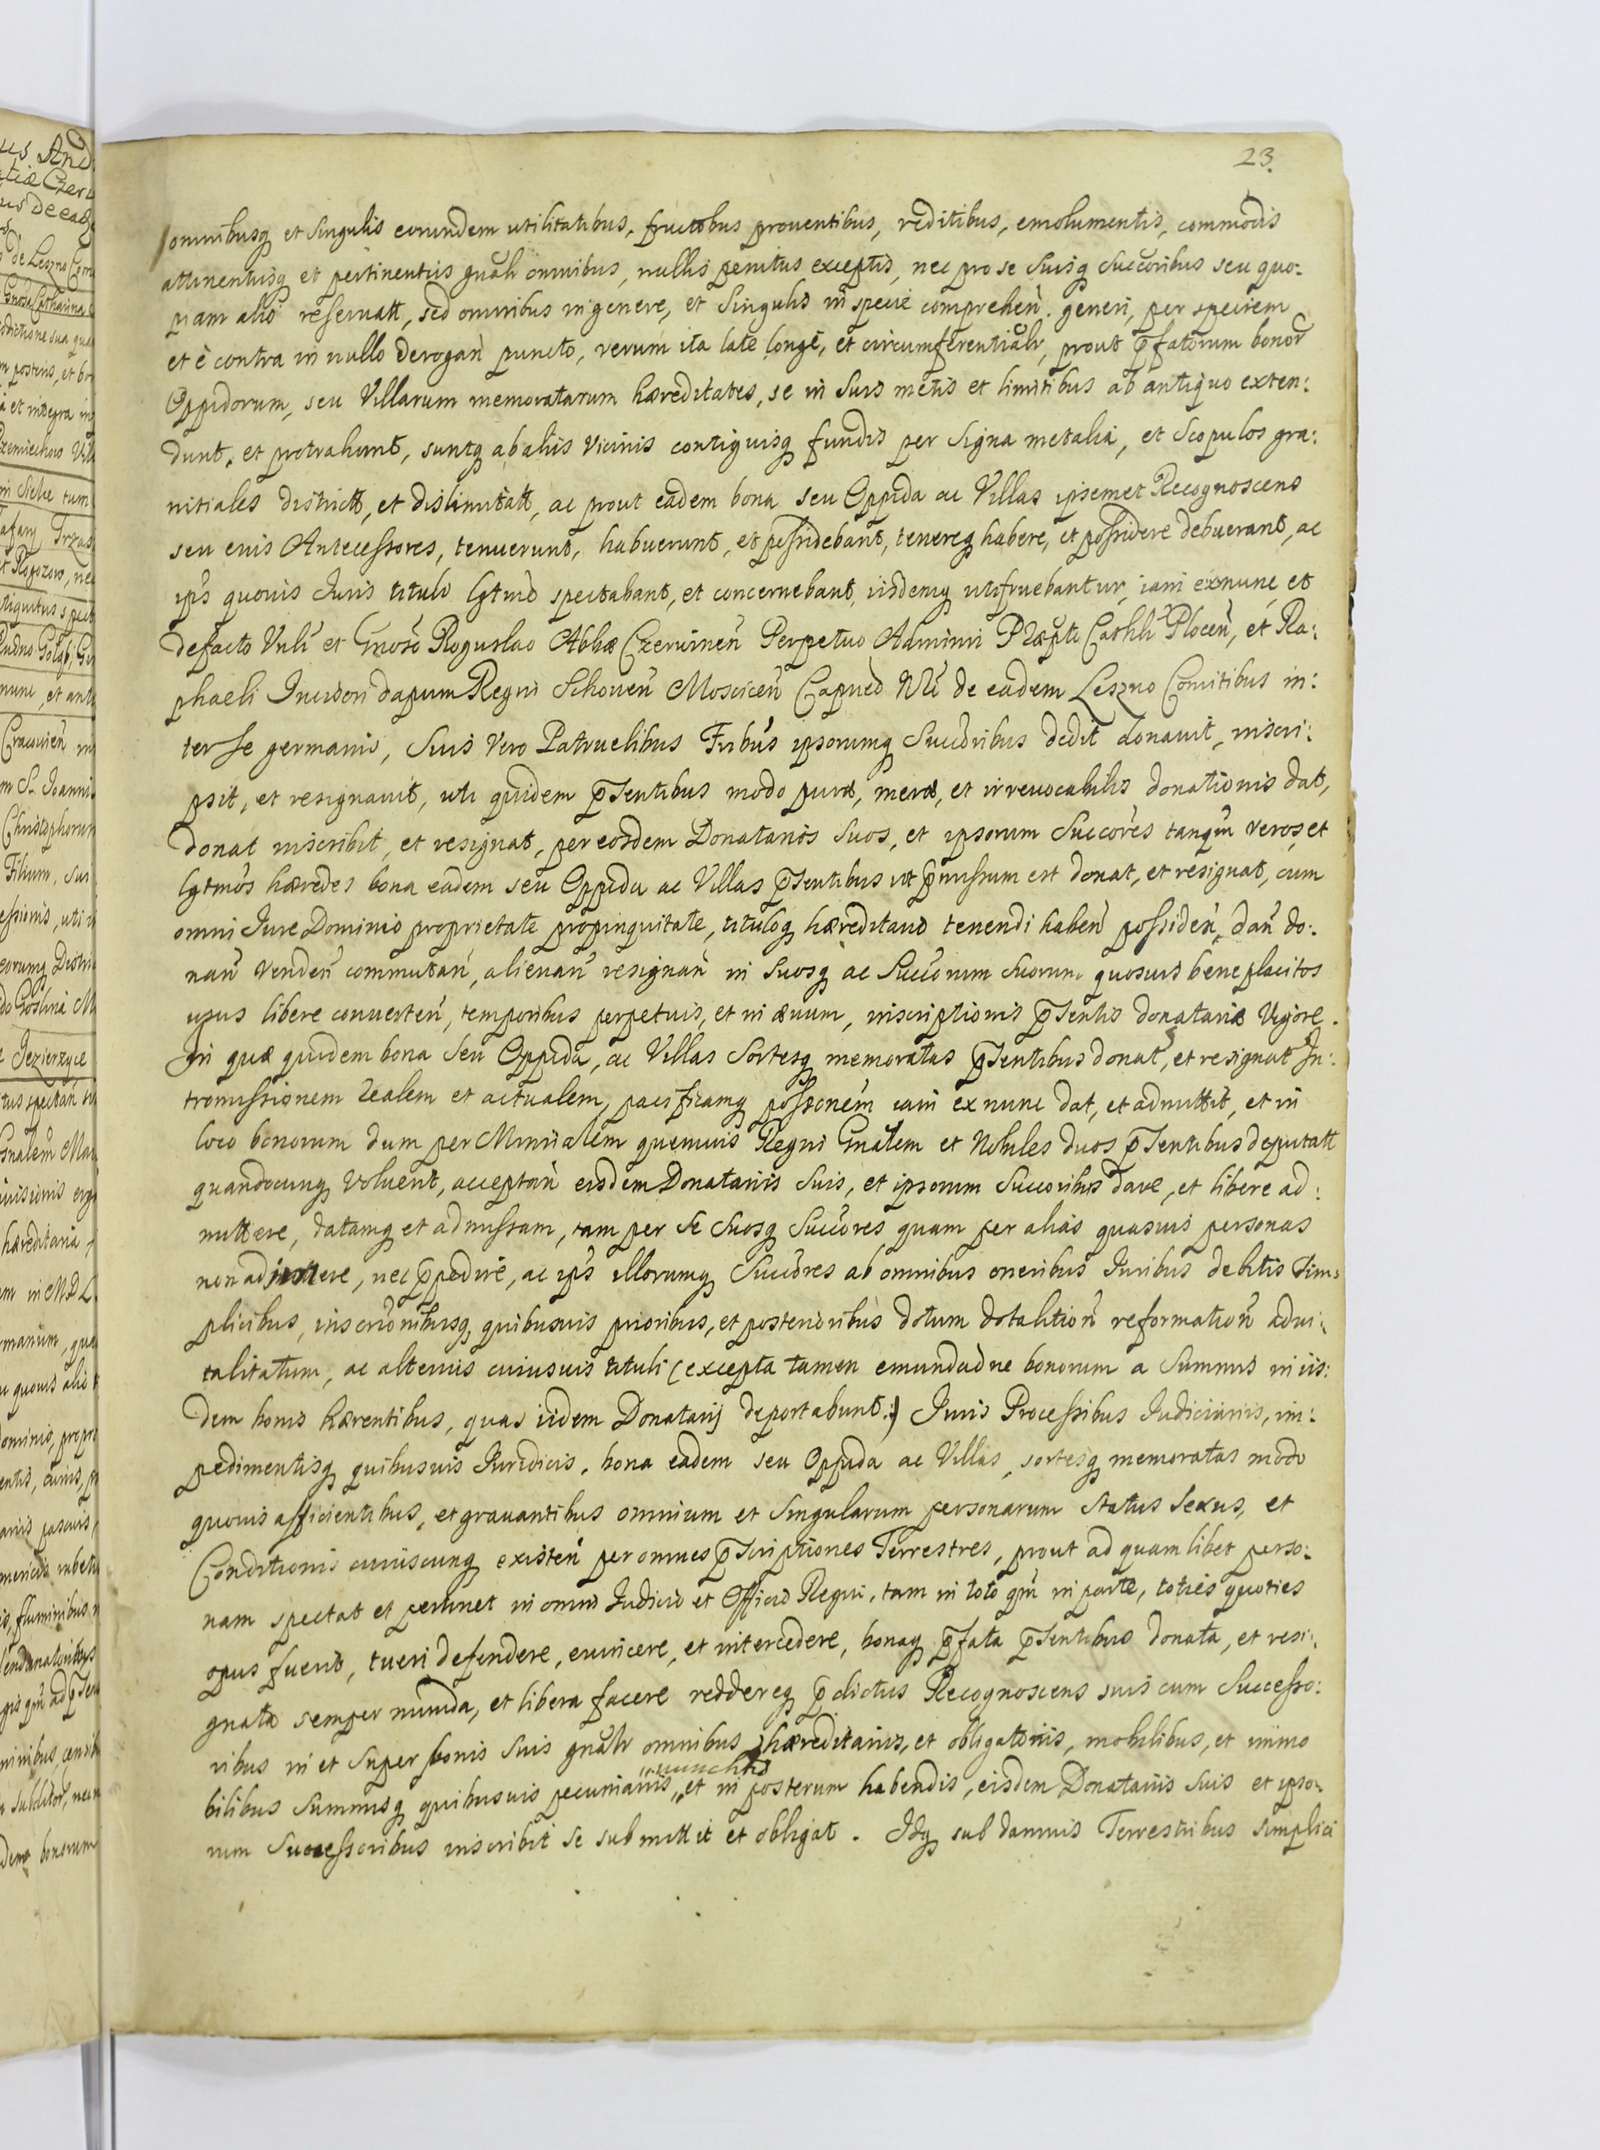 23.
omnibusq et singulis eorundem utilitatibus, fructobus prouentibus, reditibus, emolumentis, commodis
attinentiisq et pertinentiis gnalr omnibus, nullis penitus exceptis, nec pro se suisq succoribus seu quo-
piam alio reseruatt, sed omnibus in genere, et singulis in specie comprehen. generi, per speciem
et è contra in nullo derogan puncto, verum ita late longe, et circumferentialr, prout pfatorum bonor
Oppidorum, seu Villarum memoratarum hæreditates, se in suis metis et limitibus ab antiquo exten:
dunt, et protrahunt, suntq ab aliis vicinis contiguisq fundis per signa metalia, et scopulos gra:
nitiales districtt, et dislimitatt, ac prout eadem bona seu Oppida ac Villas ipsemet Recognoscens
seu euis Antecessores, tenuerunt, habuerunt, et possidebant, tenereq habere, et possidere debuerant, ac
ips quouis Iuris titulo lgtmo spectabant, et concernebant, iisdemq utifruebantur, iam exnunc et
defacto Vnli et Gnoso Boguslao Abbæ Czeruinen Perpetuo Adminri Præpto Cathli Plocen, et Ra:
phaeli Incisori dapum Regni Schouen Moscicen Capneo Nli de eadem Leszno Comitibus in:
ter se germanis, suis vero Patruelibus Fribus ipsorumq succoribus dedit donauit, inscri:
psit, et resignauit, uti quidem psentibus modo puræ, meræ, et irreuocabilis donationis dat,
donat inscribit, et resignat, per eosdem Donatarios suos, et ipsorum succores tanqm veros, et
lgtmos hæredes bona eadem seu Oppida ac Villas psentibus ut pmissum est donat, et resignat, cum
omni Iure Dominio proprietate propinquitate, tituloq hæreditario tenendi haben possiden, dan do:
nan venden commutan, alienan resignan in suosq ac succorum suorum quosuis beneplacitos
usus libere conuerten, temporibus perpetuis, et in æuum, inscriptionis psentis donatariæ vigore.
In quæ quidem bona seu Oppida, ac Villas sortesq memoratas psentibus donat, et resignat In:
tromissionem realem et actualem, pacificamq possonem iam ex nunc dat, et admittit, et in
loco bonorum dum per Minrialem quemuis Regni Gnalem et Nobiles duos psentibus deputatt
quandocunq voluerit, acceptan eisdem Donatariis suis, et ipsorum succoribus dare, et libere ad:
mittere, datamq et admissam, tam per se suosq succores, quam per alias quasuis personas
non adimere, nec ppedire, ac ips illorumq succores ab omnibus oneribus Iuribus debitis sim:
plicibus, inscrionibusq quibusuis prioribus, et posterioribus dotum dotalition reformation adui:
talitatum, ac alterius cuiusuis tituli (excepta tamen emundaone bonorum a summis in iis:
dem bonis hærentibus, quas iidem Donatarij deportabunt:) Iuris Processibus Iudiciariis, im:
pedimentisq quibusuis Iuridicis, bona eadem seu Oppida ac Villas, sortesq memoratas modo
quouis afficientibus, et grauantibus omnium et singularum personarum status sexus, et
Conditionis cuiuscunq existen per omnes pscriptiones Terrestres, prout ad quamlibet perso:
nam spectat et pertinet in omni Iudicio et Officio Regni, tam in toto qm in parte, toties quoties
opus fuerit, tueri defendere, euincere, et intercedere, bonaq pfata psentibus donata, et resi:
gnata semper munda, et libera facere reddereq pdictus Recognoscens suis cum Successo:
ribus in et super bonis suis gnalr omnibus hæreditariis, et obligatoriis, mobilibus, et immo
bilibus summisq quibusuis pecuniariis, et in posterum habendis, eisdem Donatariis suis et ipso:
rum Successoribus inscribit se submittit et obligat. Idq sub damnis Terrestribus simplici